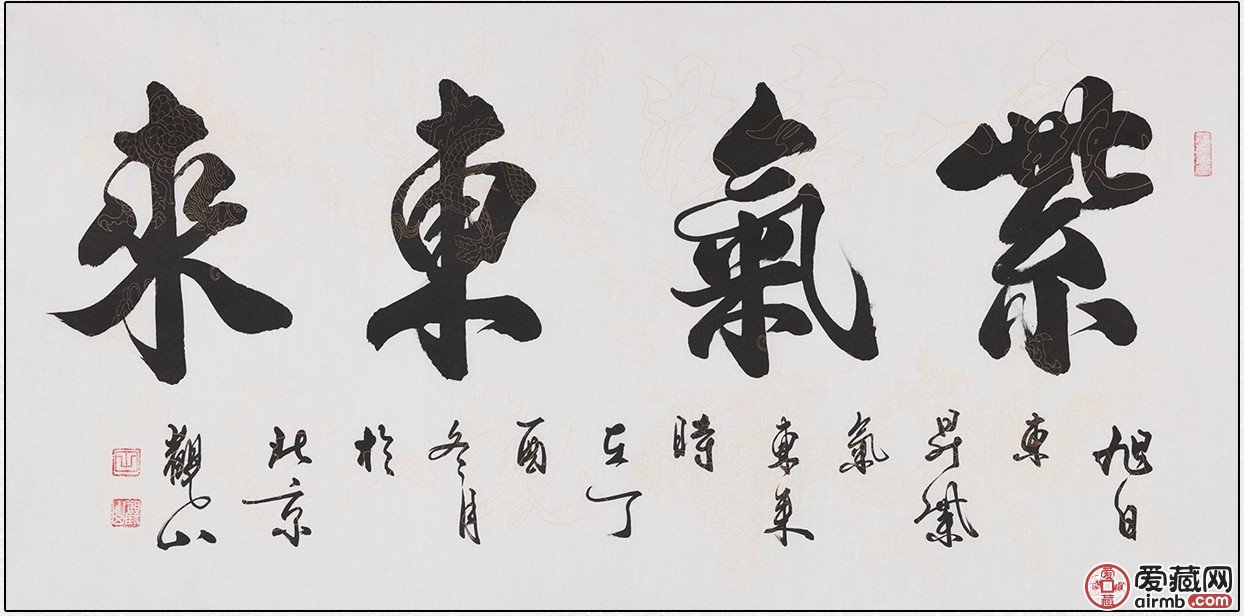 紫氣東來
旭日東昇紫氣東來時在丁酉冬月於北京觀山
爱藏
爱藏网
airmb.com